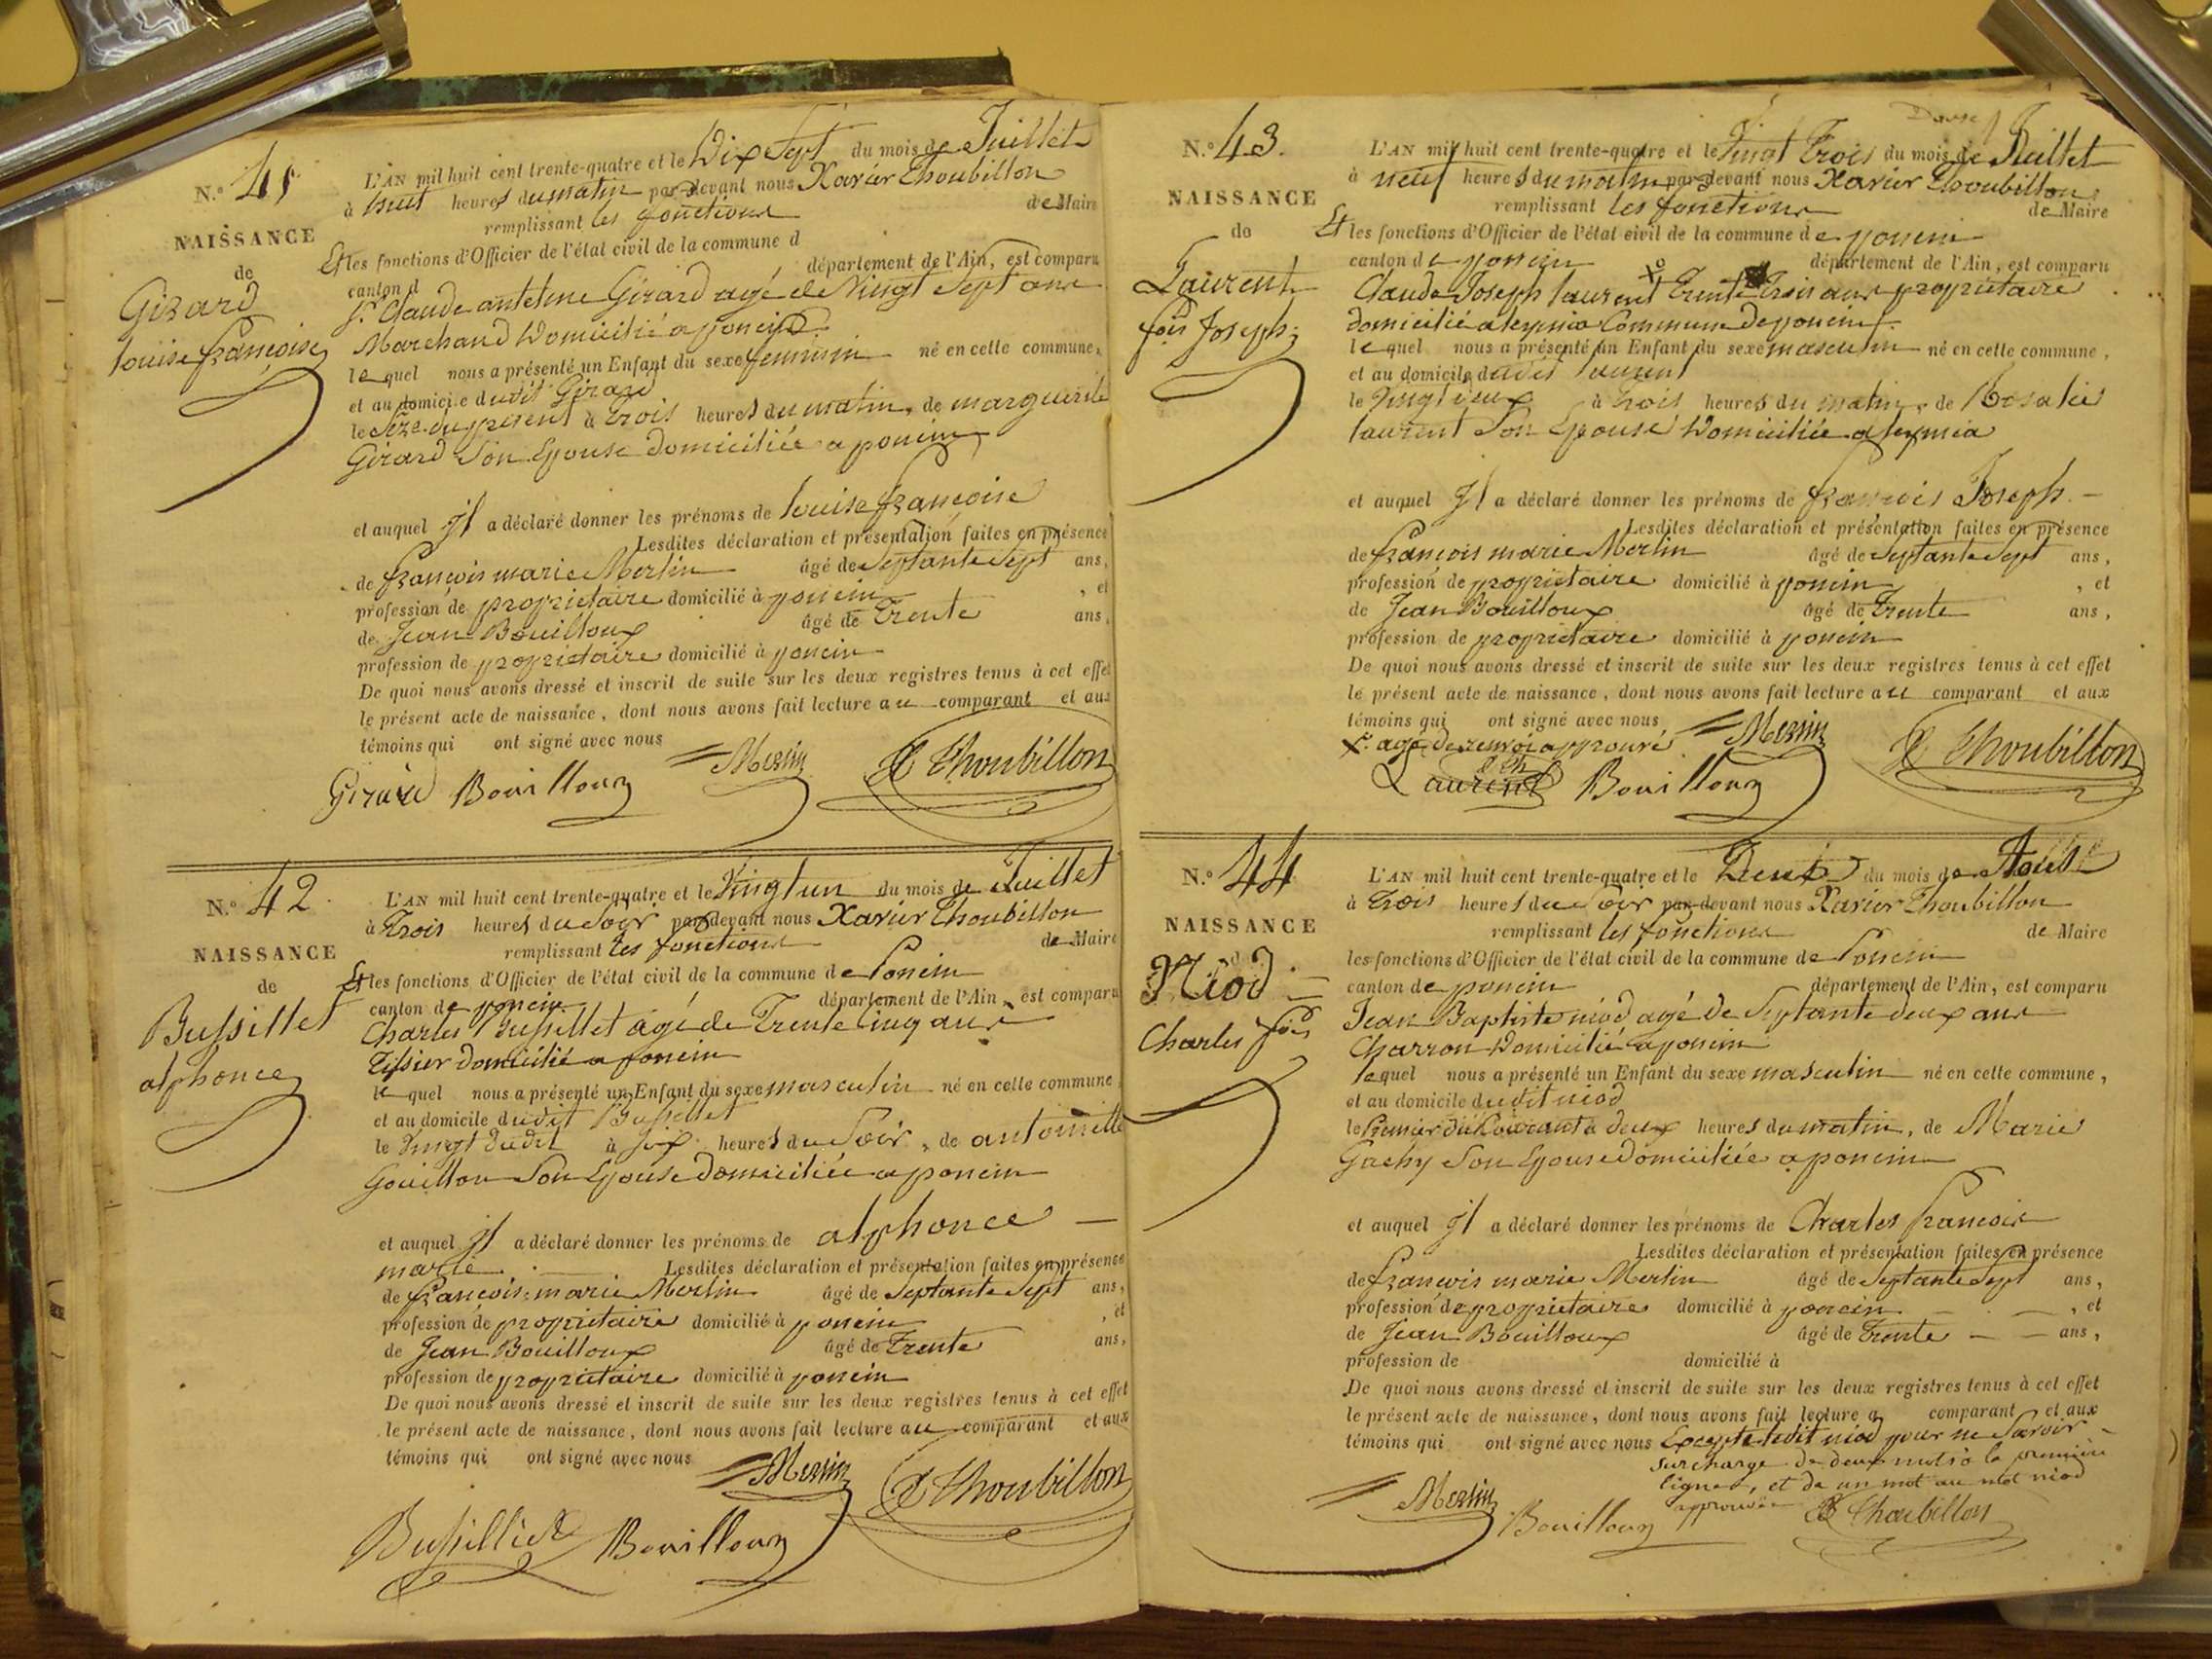 N.º 41
NAISSANCE
de
Girard
louise françoise
L'AN mil huit cent trente-quatre et le Dix Sept du mois de Juillet
à huit heures du matin par-devant nous Xavier Thoubillon
remplissant les fonctions de Maire
Et les fonctions d'Officier de l'état civil de la commune d
canton d département de l'Ain, est comparu
Sr. Claude antelme Girard agé de Vingt Sept ans
Marchand Domicilié a poncin
lequel nous a présenté un Enfant du sexe feminin né en cette commune,
et au domicile dudit Girard
le Seze du présent à trois heures du matin, de marguerite
Girard Son Epouse domiciliée a poncin
et auquel Il a déclaré donner les prénoms de louise françoise
Lesdites déclaration et présentation faites en présence
de françois marie Merlin âgé de Septante Sept ans,
profession de proprietaire domicilié à poncin , et
de Jean Bouilloux âgé de Trente ans,
profession de proprietaire domicilié à poncin
De quoi nous avons dressé et inscrit de suite sur les deux registres tenus à cet effet
le présent acte de naissance, dont nous avons fait lecture au comparant et aux
témoins qui ont signé avec nous
Merlin X Thoubillon
Girard Bouilloux
N.º 42
NAISSANCE
de
Bussillet
alphonce
L'AN mil huit cent trente-quatre et le Vingt un du mois de Juillet
à Trois heures du Soir par-devant nous Xavier Thoubillon
remplissant les fonctions de Maire
Et les fonctions d'Officier de l'état civil de la commune de Poncin
canton de poncin département de l'Ain, est comparu
Charles Bussillet agé de Trente Cinq ans
Tissier domicilié a poncin
lequel nous a présenté un Enfant du sexe masculin né en cette commune
et au domicile dudit Bussillet
le Vingt dudit à six heures du Soir, de antoinette
Gouillon Son Epouse domiciliée a poncin
et auquel Il a déclaré donner les prénoms de alphonce —
marie. Lesdites déclaration et présentation faites en présence
de françois marie Merlin âgé de Septante Sept ans,
profession de proprietaire domicilié à poncin , et
de Jean Bouilloux âgé de Trente ans,
profession de proprietaire domicilié à poncin
De quoi nous avons dressé et inscrit de suite sur les deux registres tenus à cet effet
le présent acte de naissance, dont nous avons fait lecture au comparant et aux
témoins qui ont signé avec nous
Merlin X Thoubillon
Bussilliet Bouilloux
N.º 43.
NAISSANCE
de
Laurent
fois Joseph
L'AN mil huit cent trente-quatre et le Vingt Trois du mois de Juillet
à neuf heures du matin par-devant nous Xavier Thoubillon
remplissant les fonctions de Maire
Et les fonctions d'Officier de l'état civil de la commune de poncin
canton de poncin département de l'Ain, est comparu
Claude Joseph laurent Trente Trois ans proprietaire
domicilié a leymia Commune de poncin
lequel nous a présenté un Enfant du sexe masculin né en cette commune,
et au domicile dudit laurent
le Vingt deux à trois heures du matin, de Rosalie
laurent Son Epouse Domiciliée a leymia
et auquel Il a déclaré donner les prénoms de françois Joseph. —
Lesdites déclaration et présentation faites en présence
de françois marie Merlin âgé de Septante Sept ans,
profession de proprietaire domicilié à poncin , et
de Jean Bouilloux âgé de Trente ans,
profession de proprietaire domicilié à poncin
De quoi nous avons dressé et inscrit de suite sur les deux registres tenus à cet effet
le présent acte de naissance, dont nous avons fait lecture au comparant et aux
témoins qui ont signé avec nous
agé de renvoi approuvé Merlin X Thoubillon
Laurent Bouilloux
N.º 44
NAISSANCE
Niod
Charles fois
L'AN mil huit cent trente-quatre et le Deux du mois de Aoust
à Trois heures du Soir par-devant nous Xavier Thoubillon
remplissant les fonctions de Maire
les fonctions d'Officier de l'état civil de la commune de Poncin
canton de poncin département de l'Ain, est comparu
Jean Baptiste niod agé de Septante deux ans
Charron Domicilié a poncin
lequel nous a présenté un Enfant du sexe masculin né en cette commune,
et au domicile dudit niod
le Premier du Courant à deux heures du matin, de Marie
Gachy Son Epouse Domiciliée a poncin
et auquel Il a déclaré donner les prénoms de Charles francois
Lesdites déclaration et présentation faites en présence
de françois marie Merlin âgé de Septante Sept ans,
profession de proprietaire domicilié à poncin , et
de Jean Bouilloux âgé de Trente ans,
profession de domicilié à
De quoi nous avons dressé et inscrit de suite sur les deux registres tenus à cet effet
le présent acte de naissance, dont nous avons fait lecture a comparant et aux
témoins qui ont signé avec nous Excepté ledit niod pour ne Savoir
surcharge de deux mots à la première
ligne, et de un mot au mot niod
approuvée
Merlin Bouilloux X Thoubillon